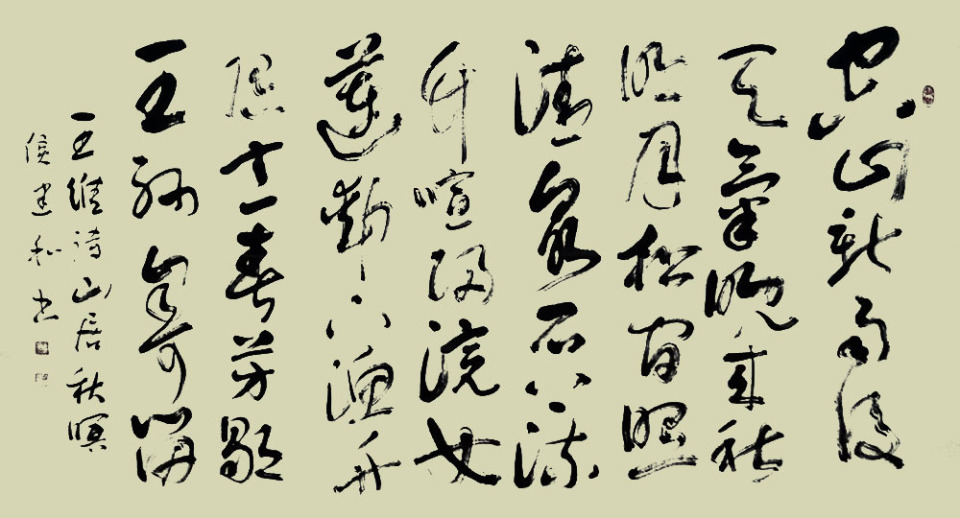 空山新雨後
天氣晚來秋
明月松間照
清泉石上流
竹喧歸浣女
蓮動下漁舟
隨意春芳歇
王孫自可留
王維詩山居秋暝
侯建和書